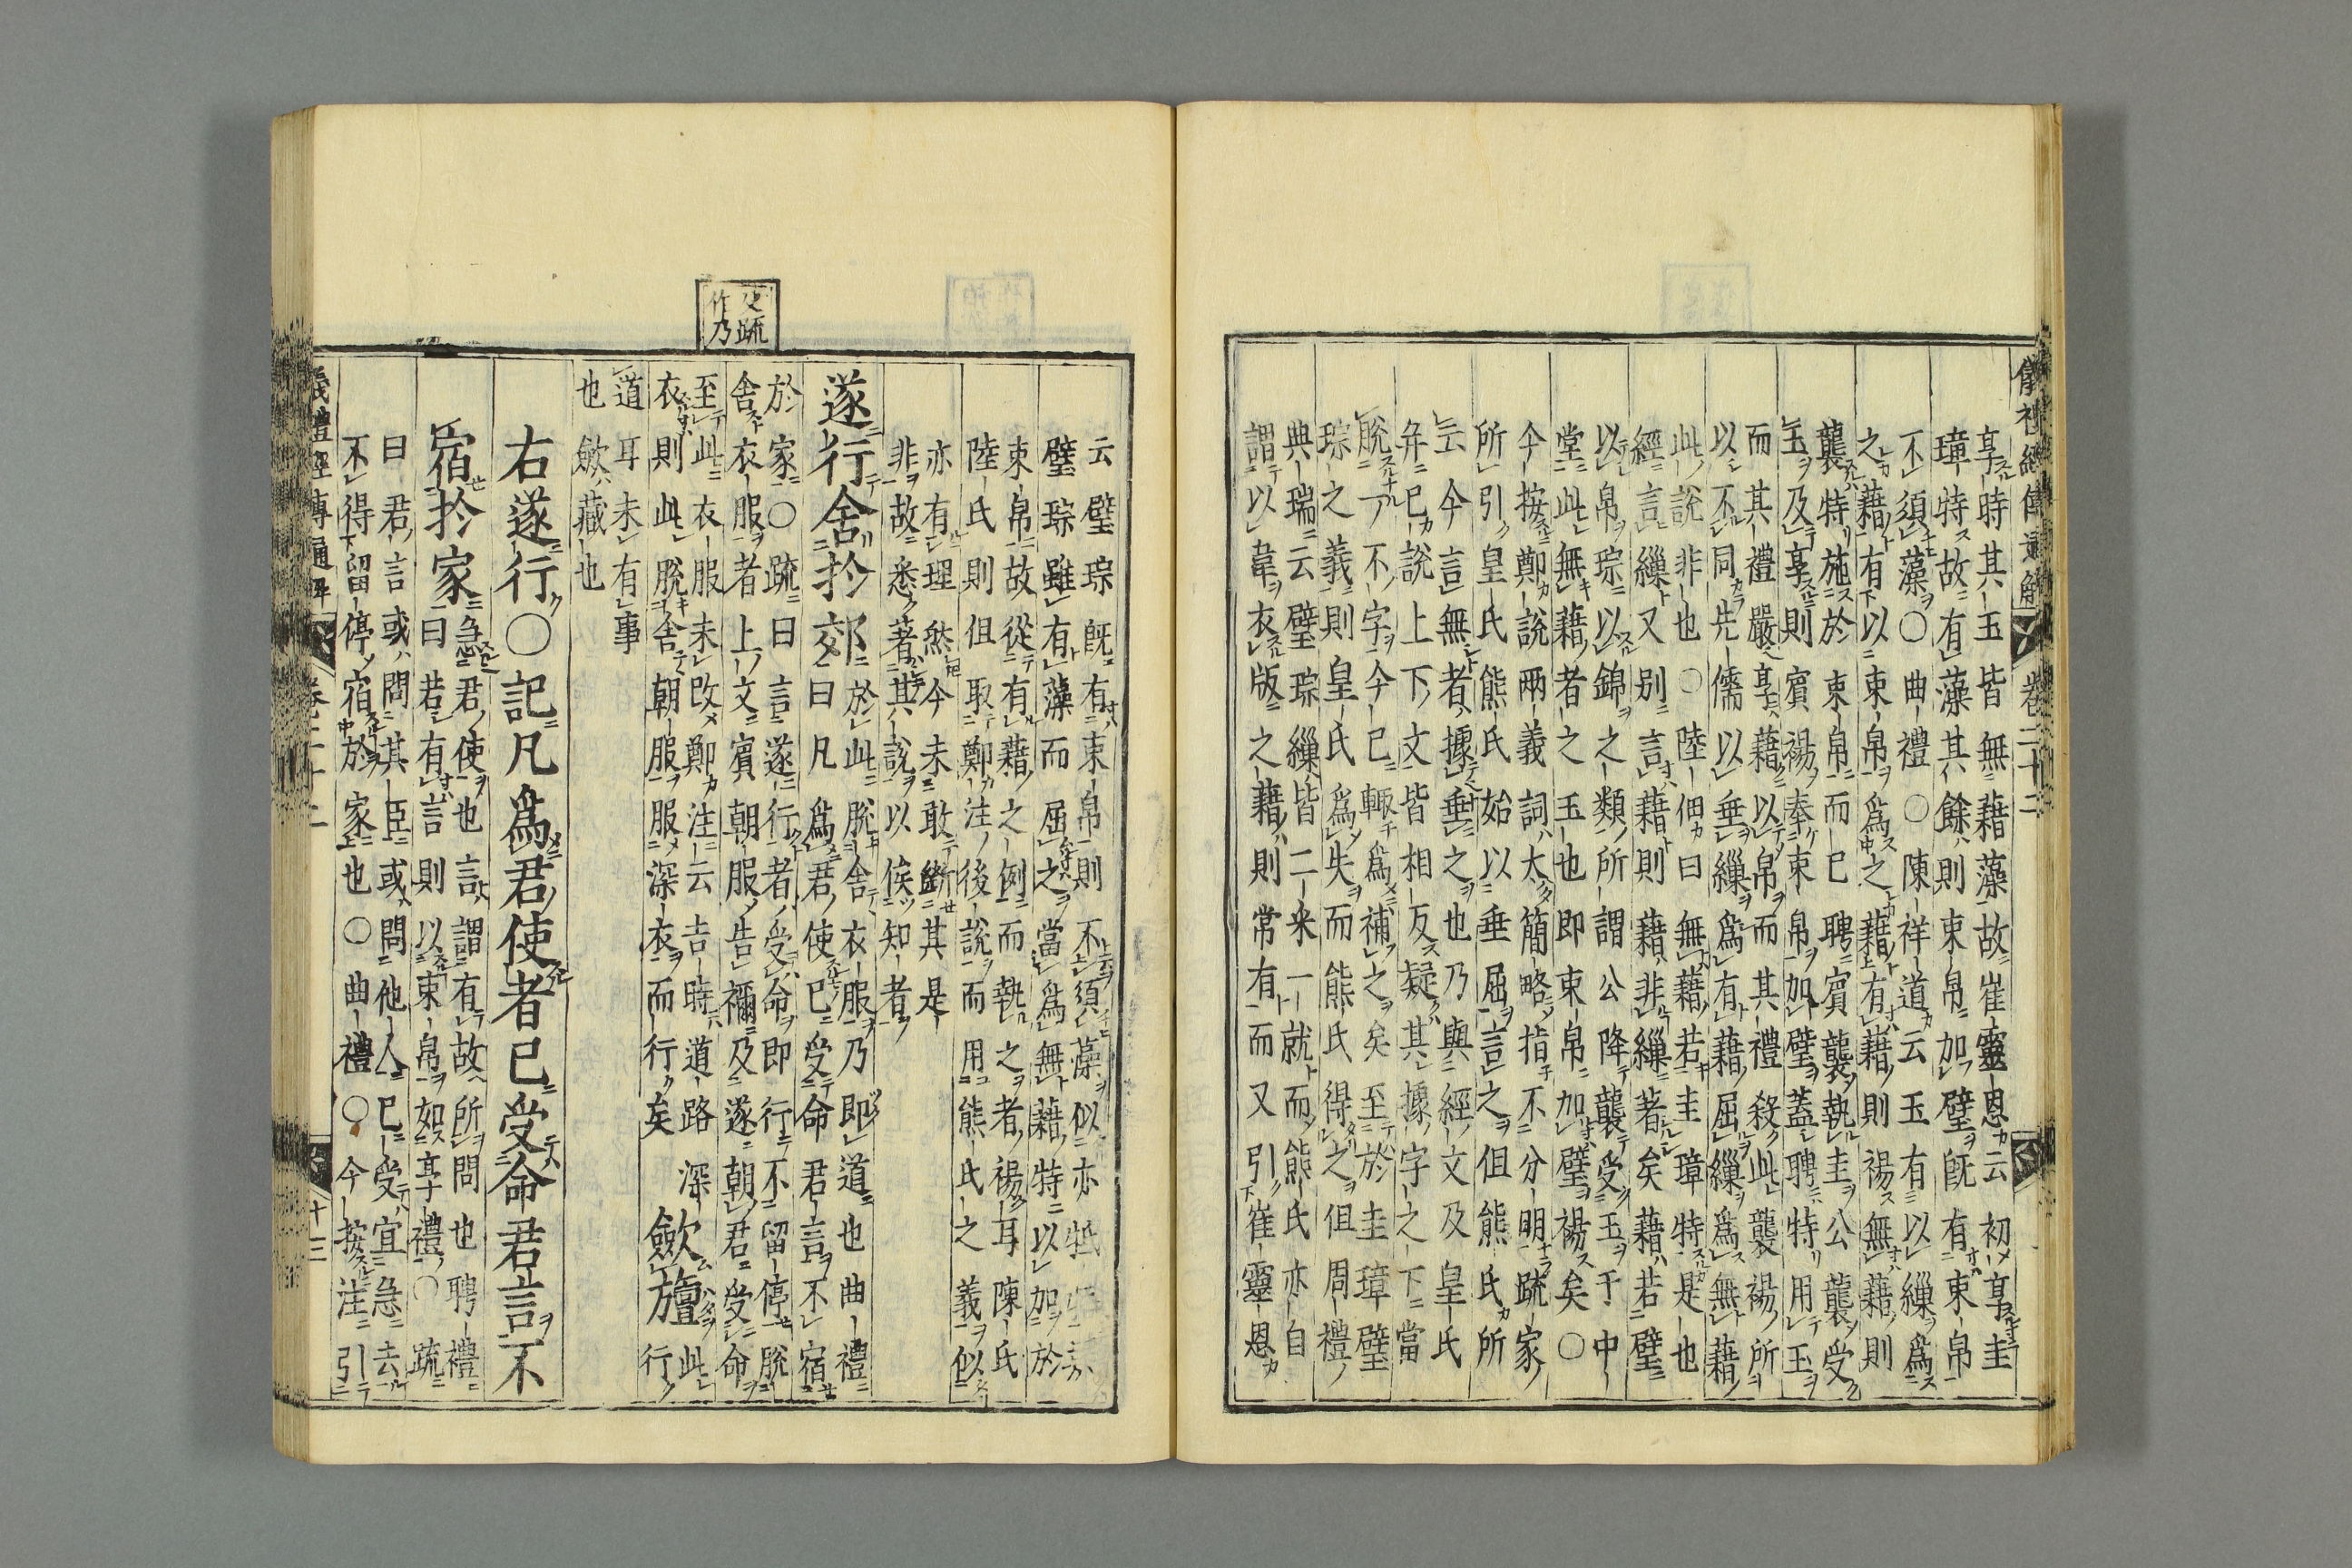 儀禮經傳通解 卷二十二
享時其玉皆無藉藻故崔靈恩云初享圭
璋特故有藻其餘則束帛加璧既有束帛
不須藻〇曲禮〇陳祥道云玉有以繅爲
之藉有以束帛爲之藉有藉則裼無藉則
襲特施於束帛而已聘賓襲執圭公襲受
玉及享則賓裼奉束帛加璧蓋聘特用玉
而其禮嚴享藉以帛而其禮殺此襲裼所
以不同先儒以垂繅爲有藉屈繅爲無藉
此說非也〇陸佃曰無藉若圭璋特是也
經言繅又別言藉則藉非繅著矣藉若璧
以帛琮以錦之類所謂公降襲受玉于中
堂此無藉者之玉也即束帛加璧裼矣〇
今按鄭說兩義詞太簡略指不分明疏家
所引皇氏熊氏始以垂屈言之但熊氏所
云今言無者據垂之也乃與經文及皇氏
弁已說上下文皆相反疑其據字之下當
脫一不字今已輒爲補之矣至於圭璋璧
琮之義則皇氏爲失而熊氏得之但周禮
典瑞云璧琮繅皆二采一就而熊氏亦自
謂以韋衣版之藉則常有而又引崔靈恩
云璧琮既有束帛則不須藻似亦牴
璧琮雖有藻而屈之當爲無藉特以加於
束帛故從有藉之例而執之者裼耳陳氏
陸氏則但取鄭注後說而用熊氏之義似
亦有理然今未敢斷其是
非故悉著其說以俟知者
遂行舍於郊 於此脫舍衣服乃即道也曲禮
曰凡爲君使已受命君言不宿
於家〇疏曰言遂行者受命即行不留停脫
舍衣服者上文賓朝服告禰及遂朝君受命
至此衣服未改鄭注云吉時道路深
衣則此脫舍朝服服深衣而行矣 斂旜 此行
道耳未有事
也斂藏也
右遂行〇記凡爲君使者已受命君言不
宿於家 急君使也言謂有故所問也聘禮
曰若有言則以束帛如享禮〇疏
曰君言或問其臣或問他人已受宜急去
不得留停宿於家也〇曲禮〇今按注引
儀禮經傳通解 卷二十二 十三
疏
作乃